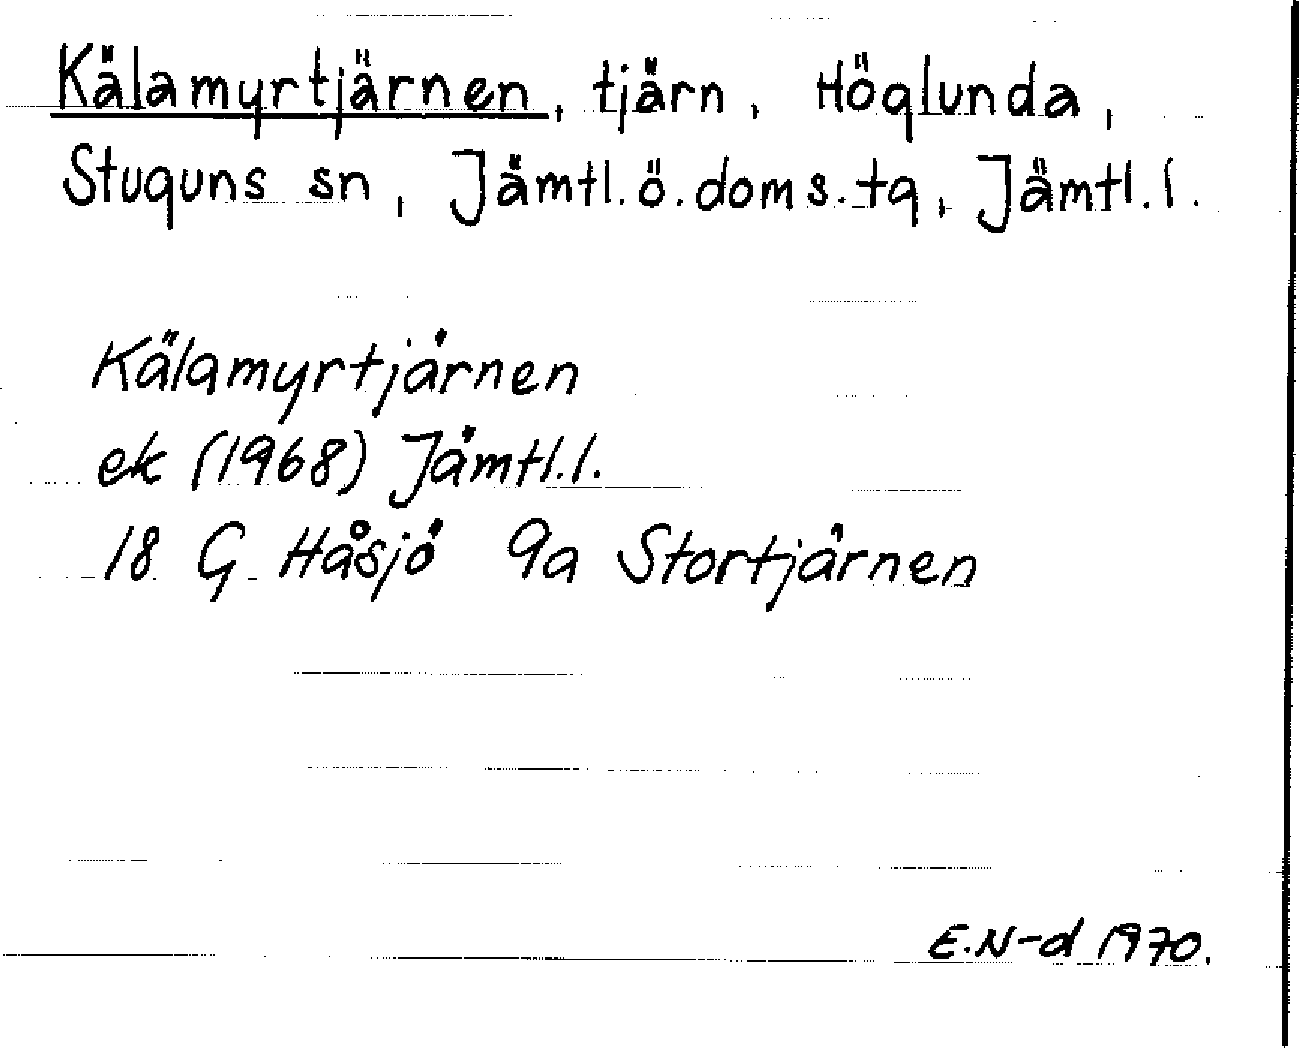 Kälamyrtjärnen, tjärn, Höglunda,
Stuguns sn, Jämtl. ö. doms. tg, Jämtl. l.
Kälamyrtjärnen
ek (1968) Jämtl. l.
18 G Håsjö 9a Stortjärnen
E.N-d 1970.